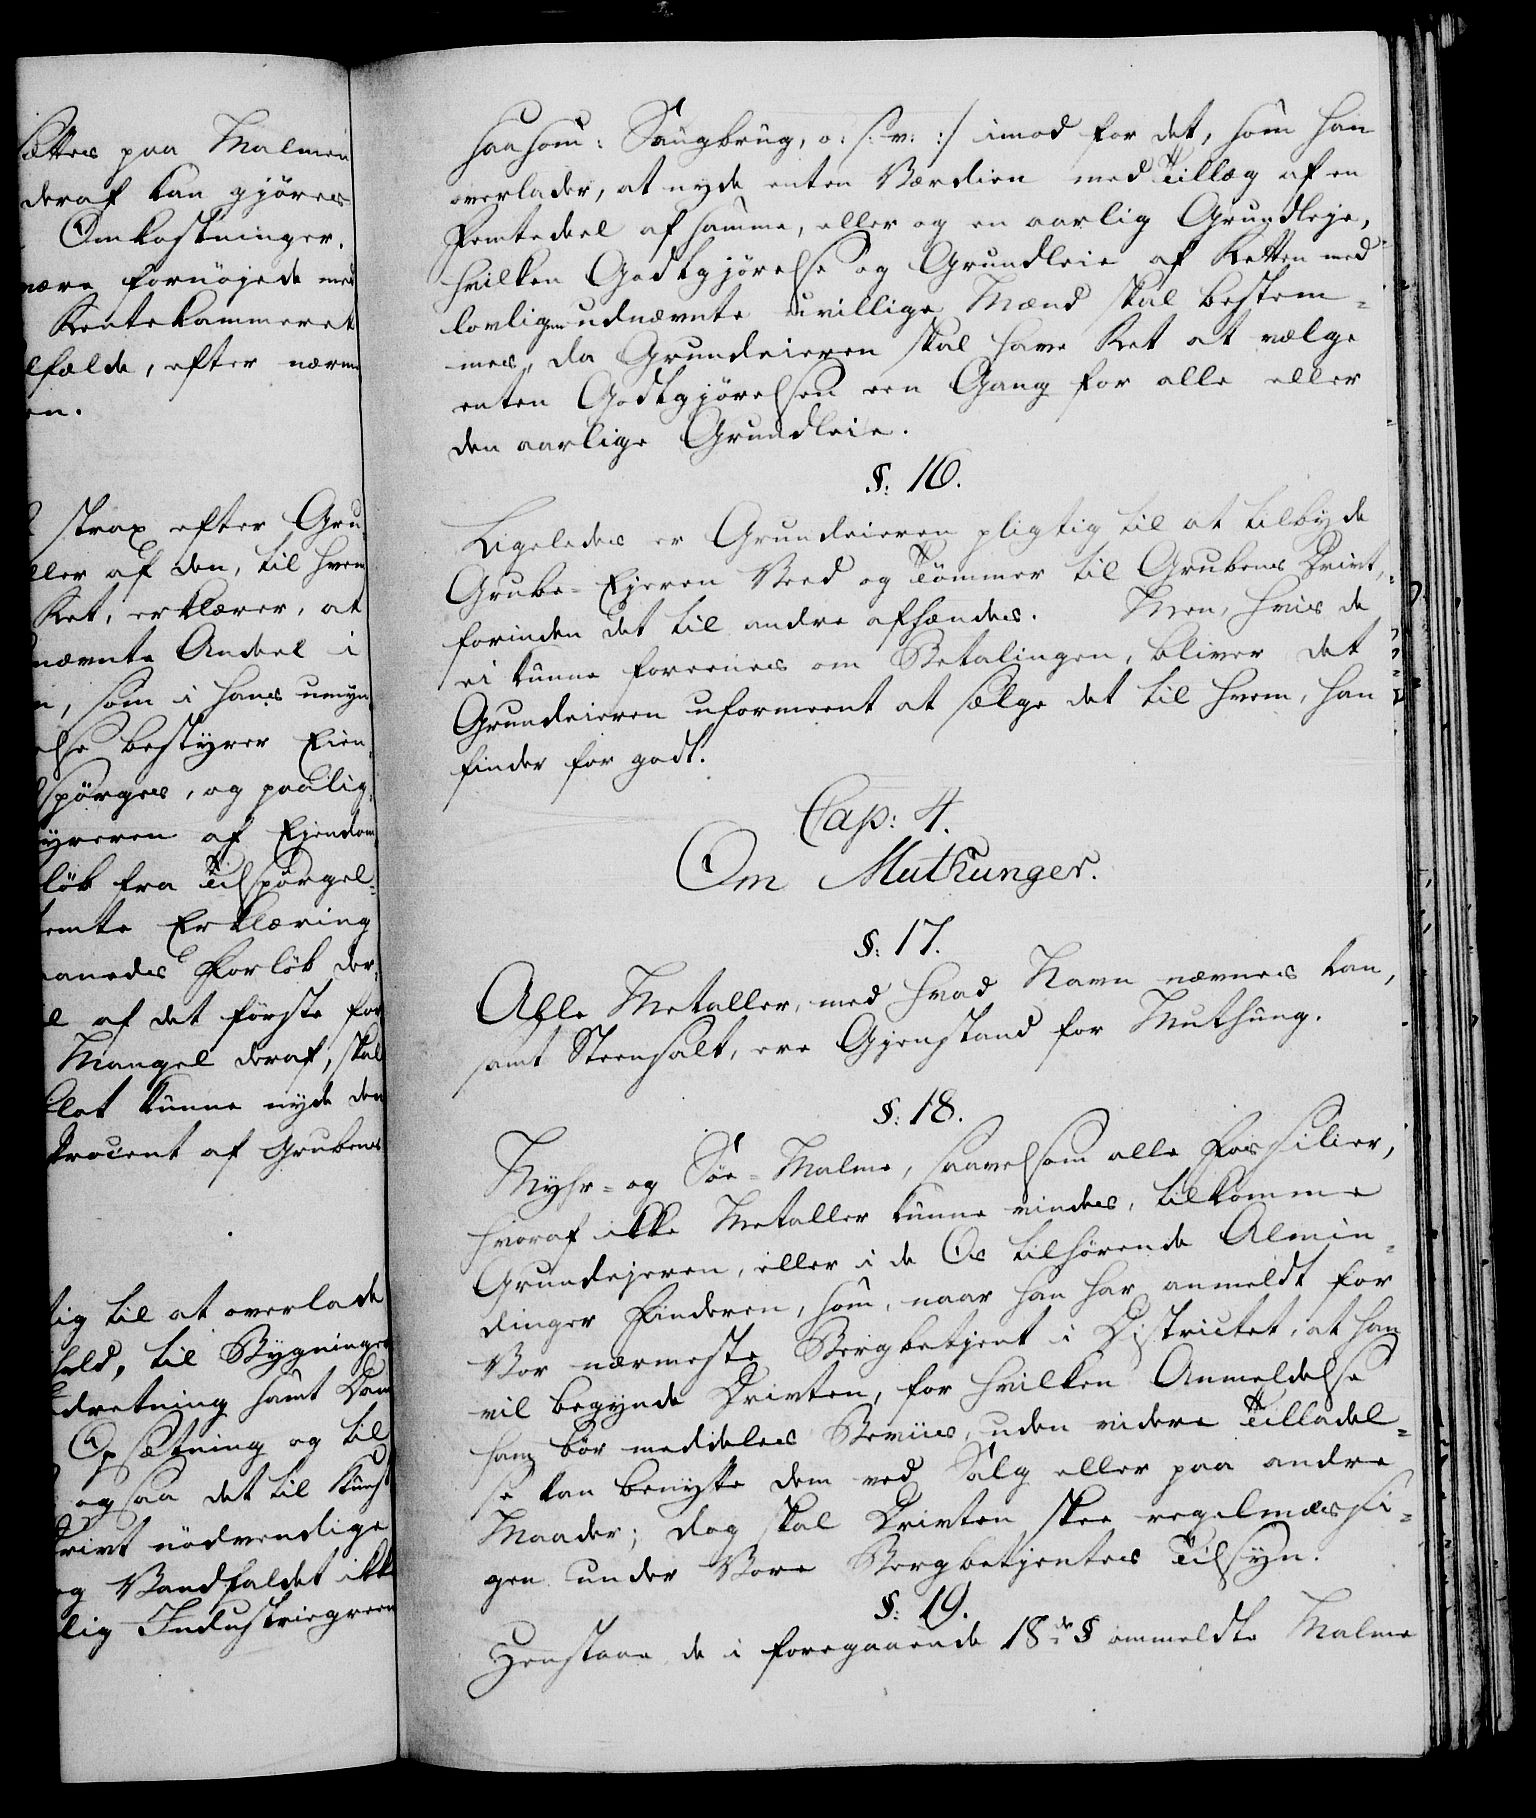 sættes paa Malmen
deraf kan gjöres
Omkostninger.
være fornöjede med
Rentekammeret
lfælde, efter nærme
en.
strax efter Gru
ller af den, til hvem
Ret, erklærer, at
nævnte Andeel i
n, som i hans umyn
else bestyrer Eien
spörges, og paalig
yreren af Ejendom
löb fra Tilspörgel-
temte Erklæring
aanedes Forlöb der
l af det förste for
Mangel deraf, skal
lot kunne nyde den
Procent af Grubens
tig til at overlade
hold, til Bygninger
dretning samt Dam
Opsætning og til
ogsaa det til Kunst
Drivt nödvendige
og Vandfaldet ikke
lig Industriegreen
saasom: Saugbrug, o: s: v: :/ imod for det, som han
overlader, at nyde enten Værdien med Tillæg af en
Femtedeel af samme, eller og en aarlig Grundleje,
hvilken Godtgjörelse og Grundleie af Retten med
lovligen udnævnte uvillige Mænd skal bestem-
mes, da Grundeieren skal have Ret at vælge
enten Godtgjörelsen een Gang for alle eller
den aarlige Grundleie.
§: 16.
Ligeledes er Grundeieren pligtig til at tilbyde
Grube-Ejeren Veed og Tömmer til Grubens Drivt,
forinden det til andre afhændes. Men, hvis de
ei kunne foreenes om Betalingen, bliver det
Grundeieren uformeent at sælge det til hvem, han
finder for godt.
Cap: 4.
Om Muthunger.
§: 17.
Alle Metaller, med hvad Navn nævnes kan,
samt Steensalt, ere Gjenstand for Muthung.
§: 18.
Myhr- og Söe-Malme, saavelsom alle Fossilier,
hvoraf ikke Metaller kunne vindes, tilkomme
Grundejeren, eller i de Os tilhörende Almin-
dinger Finderen, som, naar han har anmeldt for
Vor nærmeste Bergbetjent i Districtet, at han
vil begynde Drivten, for hvilken Anmeldelse
ham bör meddeles Beviis, uden videre Tilladel-
se kan benytte dem ved Salg eller paa andre
Maader; dog skal Drivten skee regelmæssi-
gen under Vore Bergbetjentes Tilsyn.
§: 19.
Henstaae de i foregaaende 18de § ommeldte Malme